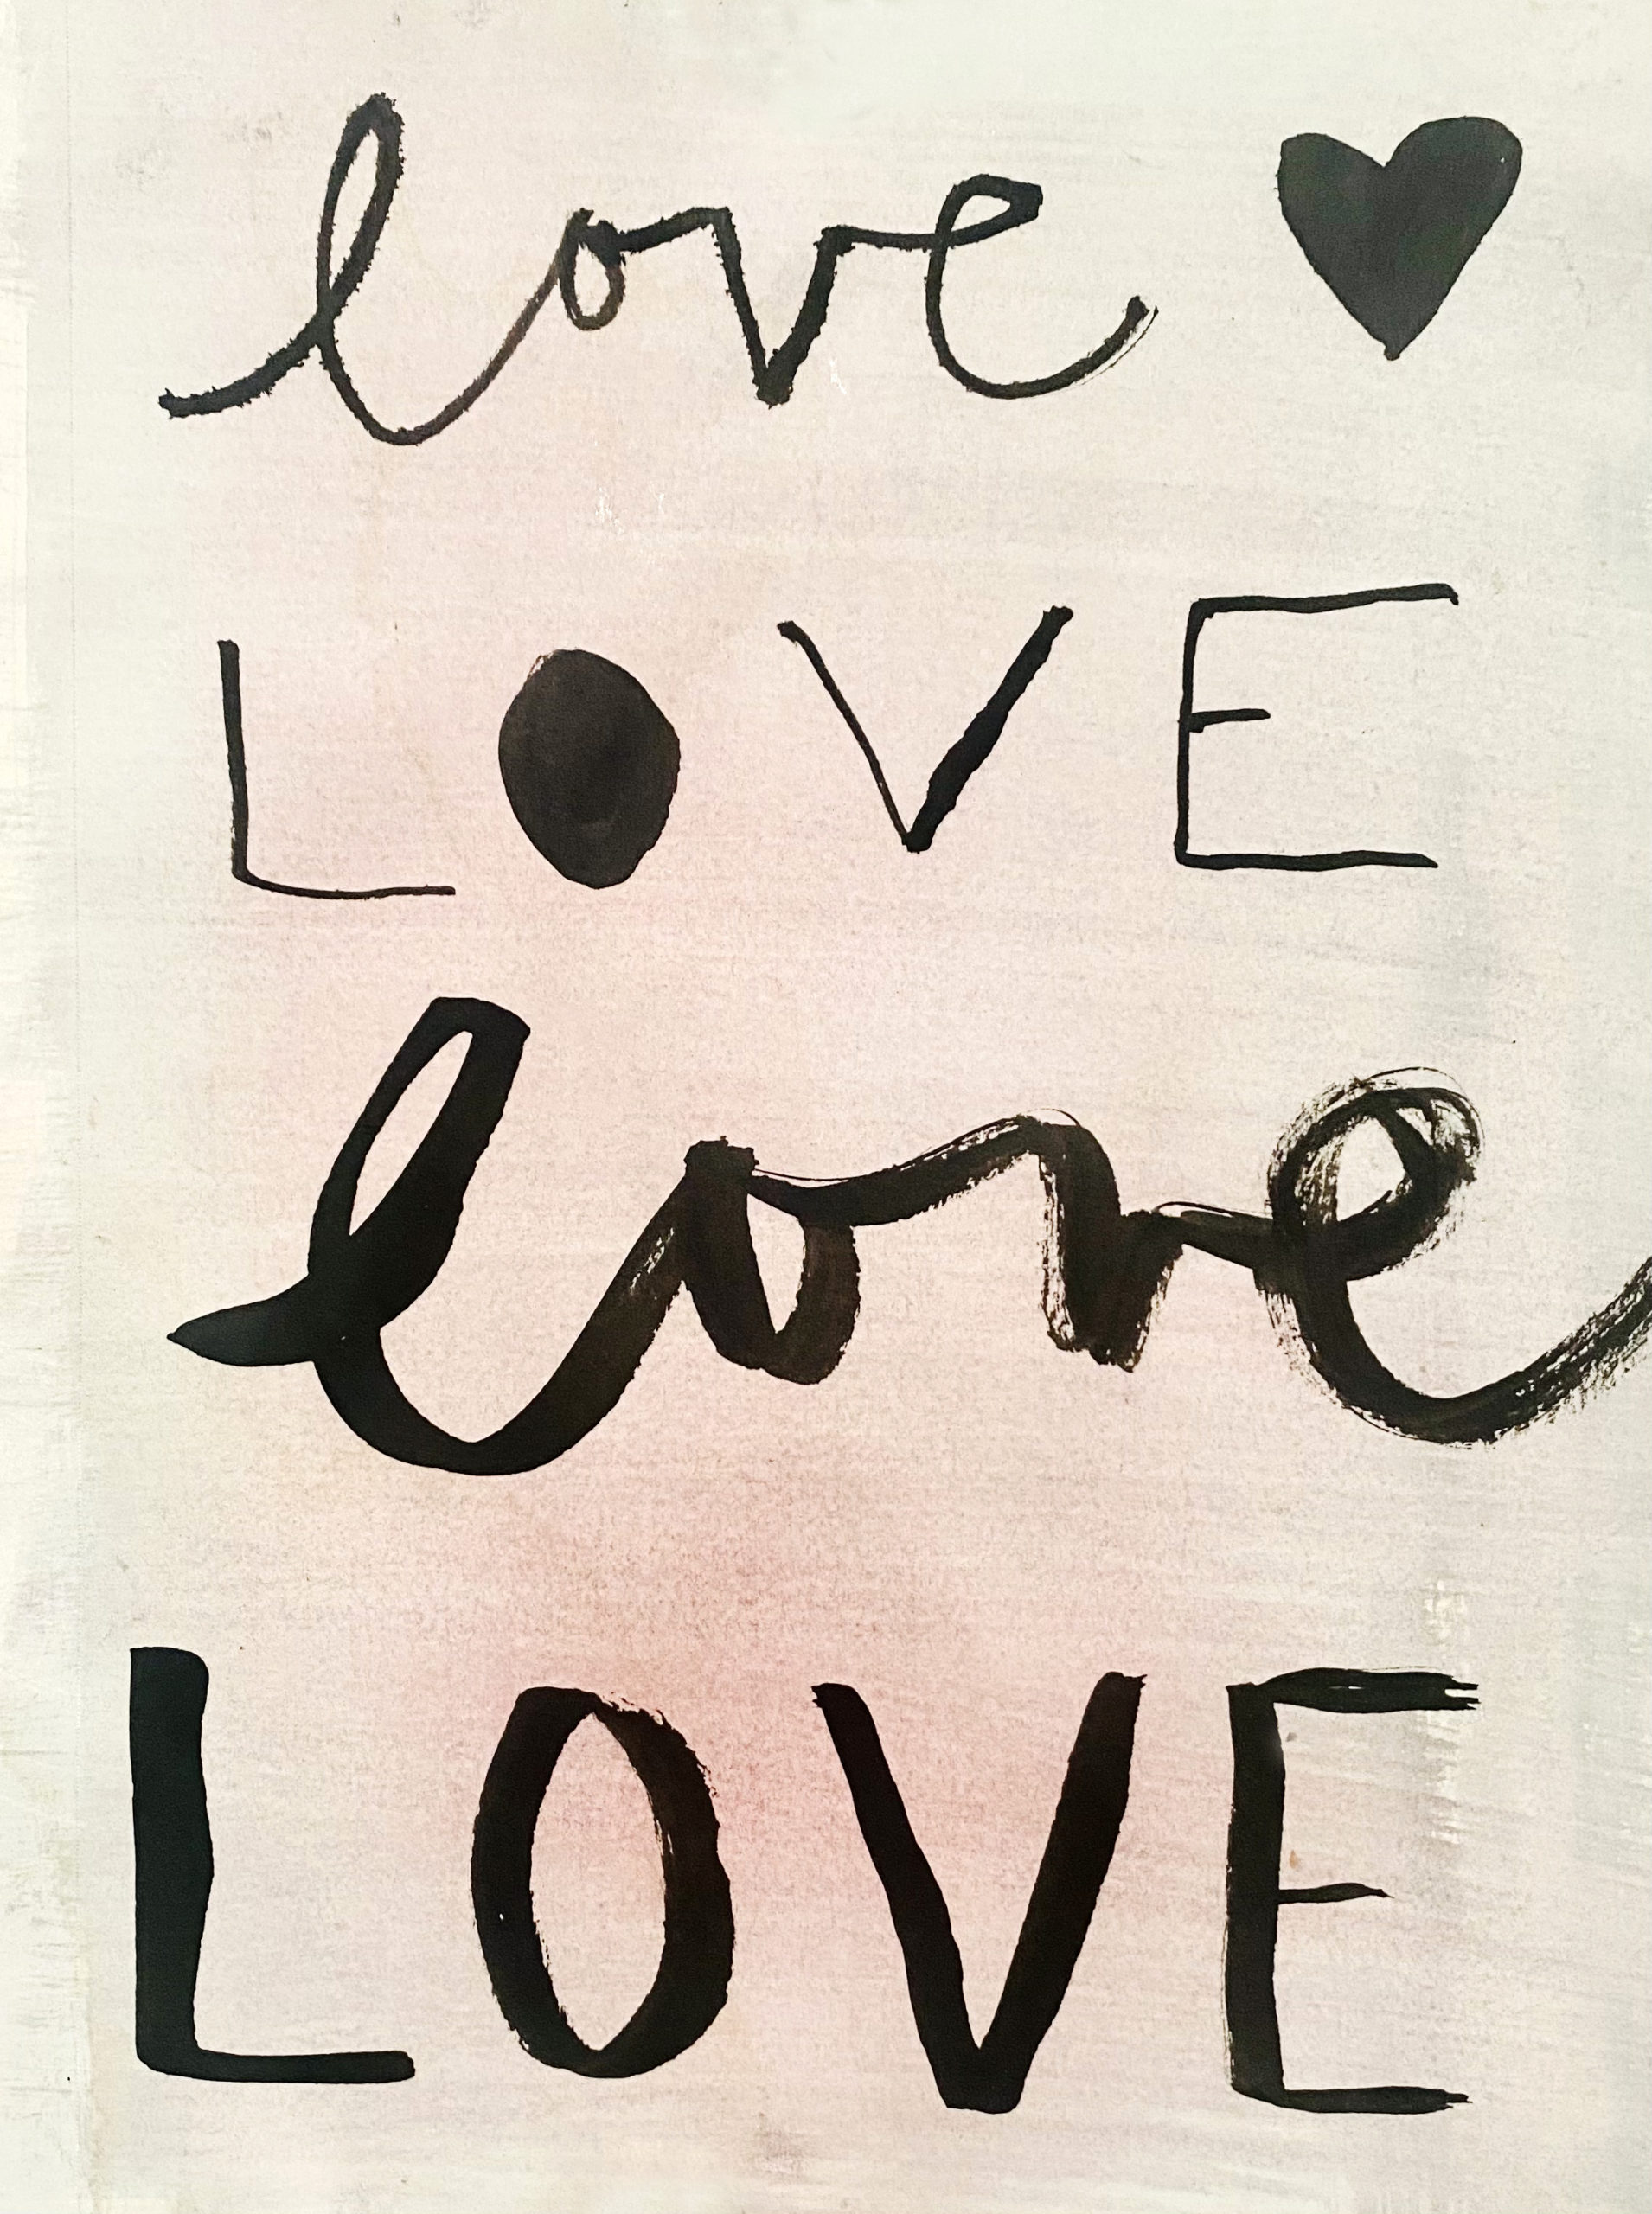 love ♥
LOVE
love
LOVE